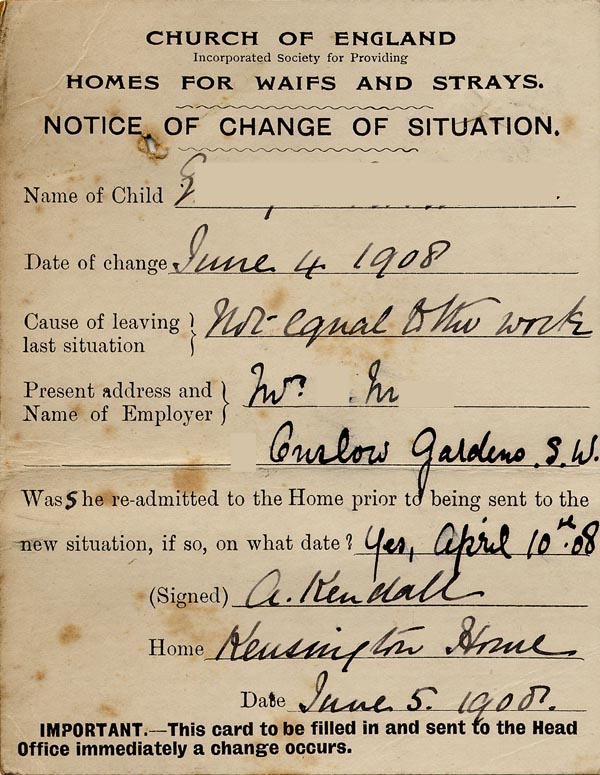 CHURCH OF ENGLAND
Incorporated Society for Providing
HOMES FOR WAIFS AND STRAYS.
NOTICE OF CHANGE OF SITUATION.
Name of Child
Date of change June 4 1908
Cause of leaving } Not equal to the work
last situation
Present address and } Mrs. M
Name of Employer
Onslow Gardens. S.W.
Was she re-admitted to the Home prior to being sent to the
new situation, if so, on what date? Yes, April 10th. 08
(Signed) A. Kendall
Home Kensington Home
Date June 5. 1908.
IMPORTANT.—This card to be filled in and sent to the Head
Office immediately a change occurs.